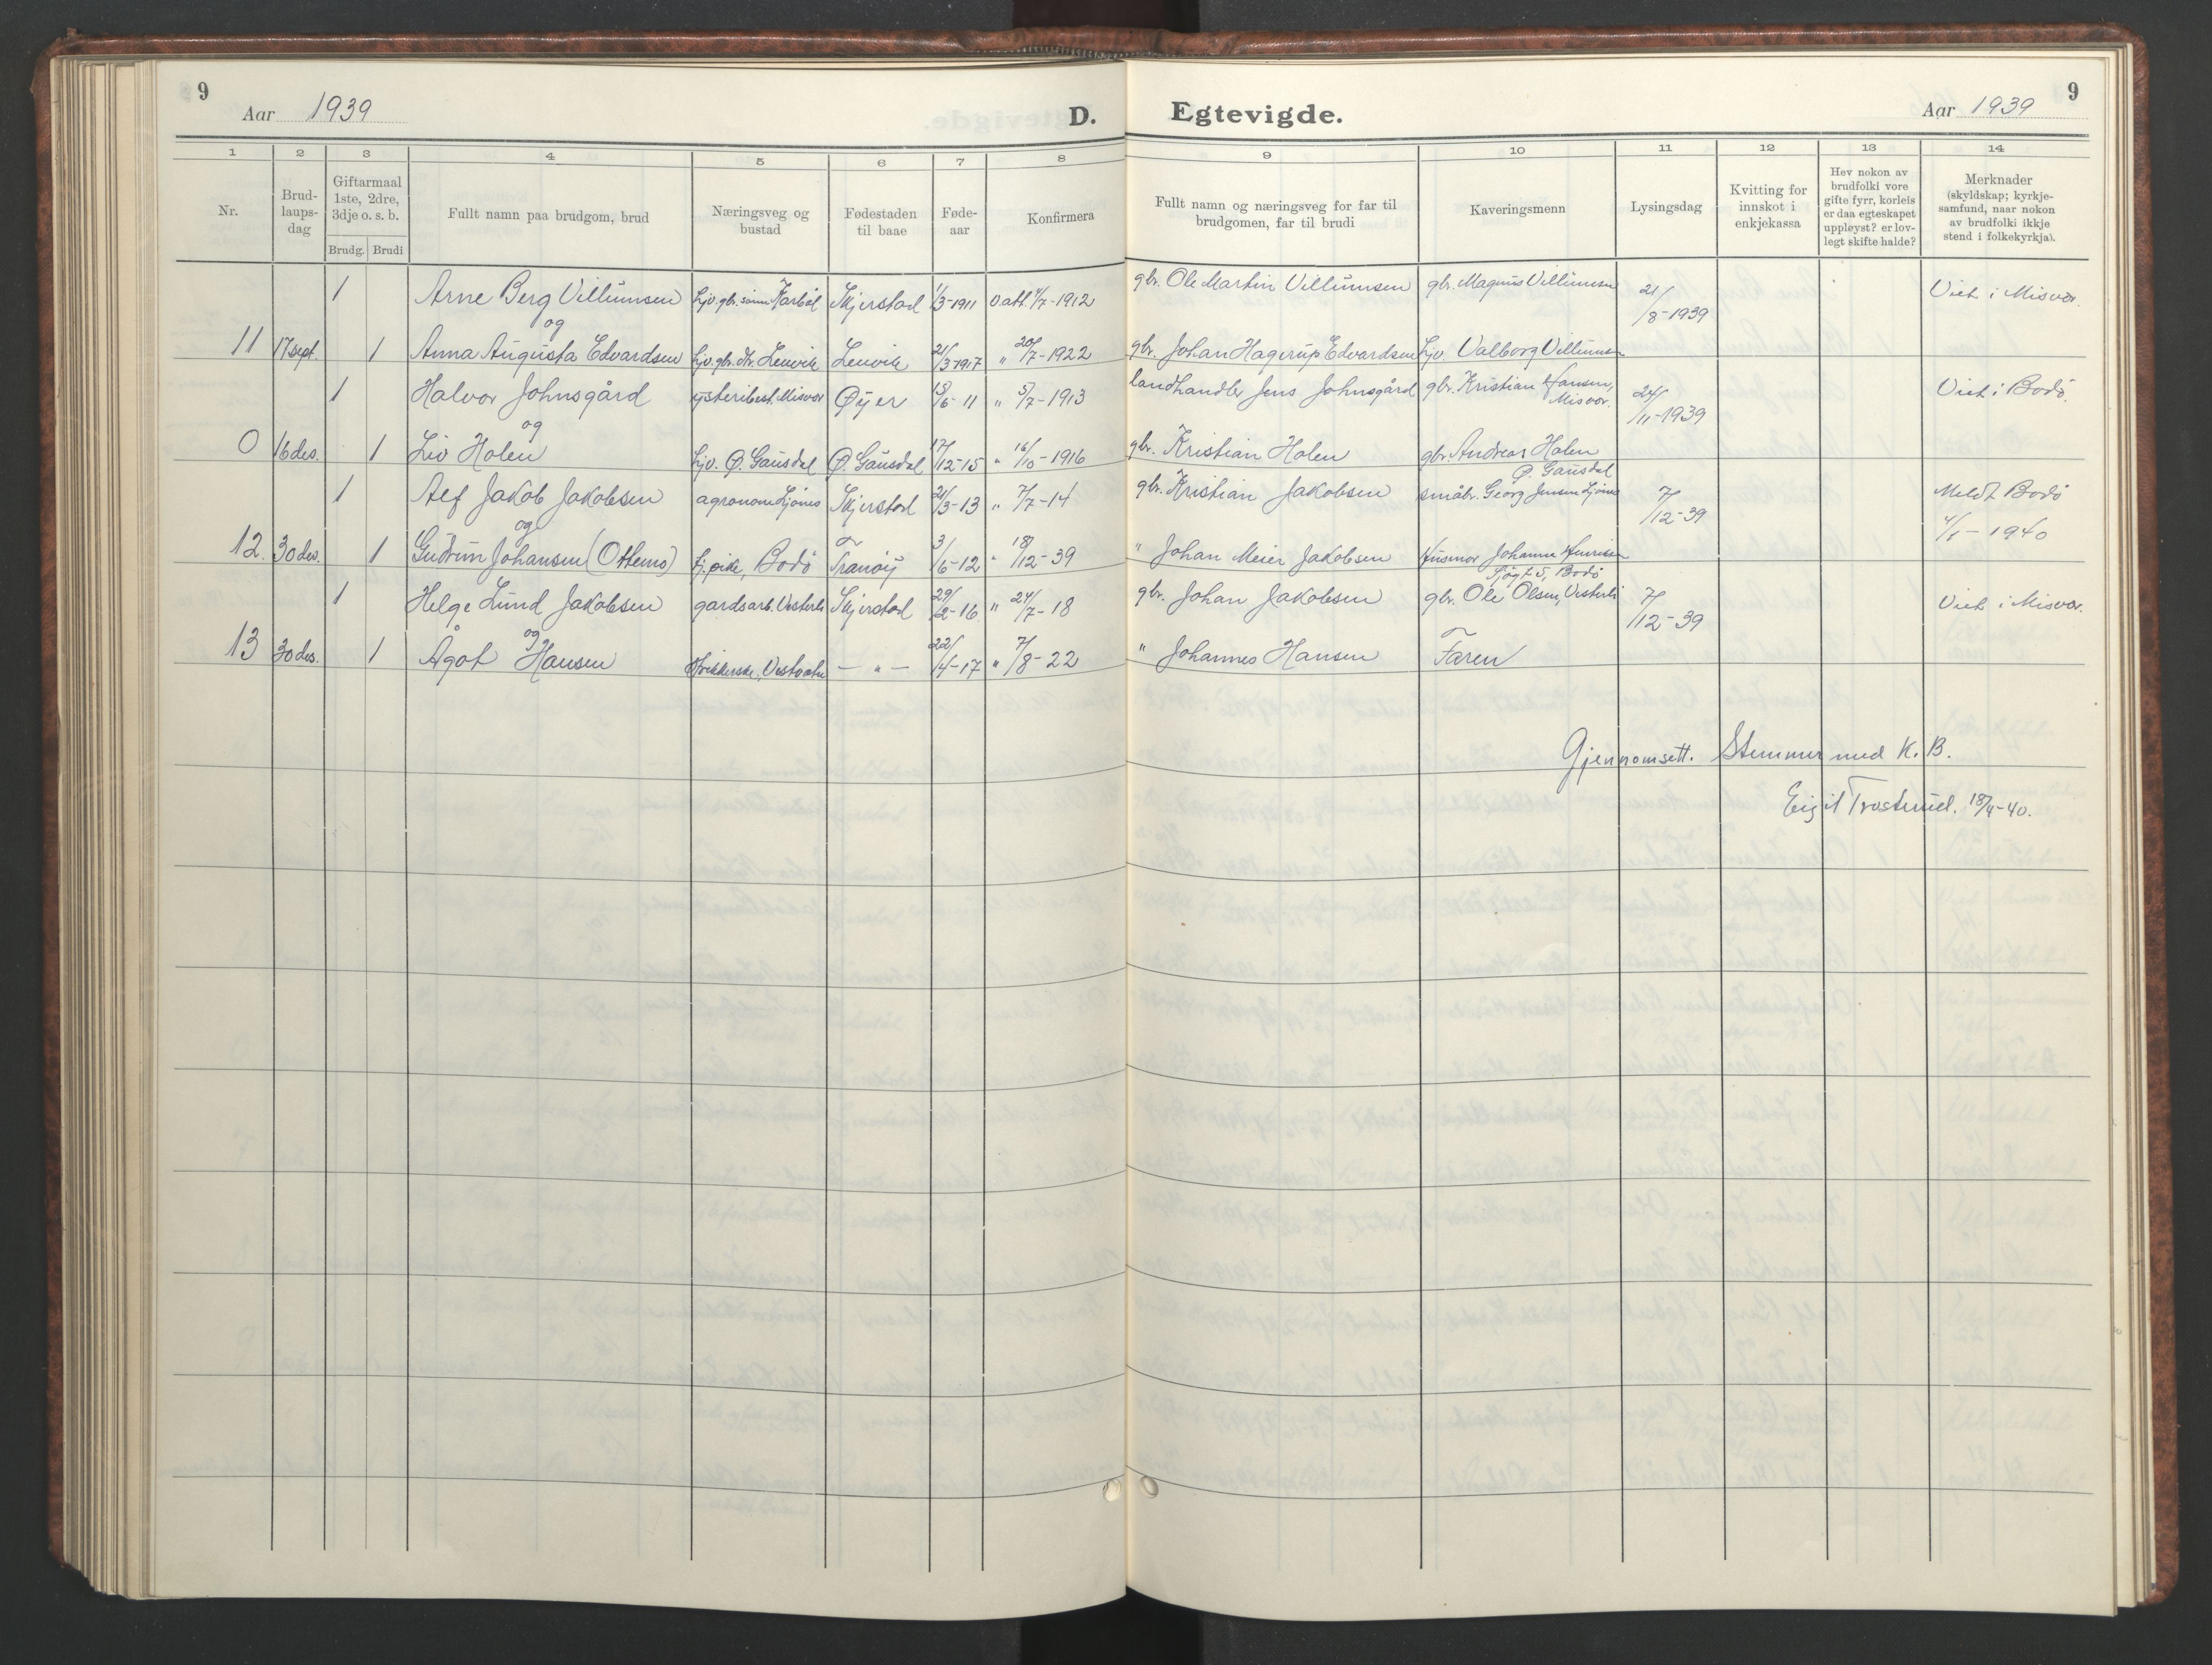 9
Aar 1939
D. Egtevigde.
Aar 1939
9
1 2 3 4 5 6 7 8 9 10 11 12 13 14
Nr.
Brud-
laups-
dag
Giftarmaal
1ste, 2dre,
3dje o. s. b.
Brudg. Brudi
Fullt namn paa brudgom, brud
Næringsveg og
bustad
Fødestaden
til baae
Føde-
aar
Konfirmera
Fullt namn og næringsveg for far til
brudgomen, far til brudi
Kaveringsmenn
Lysingsdag
Kvitting for
innskot i
enkjekassa
Hev nokon av
brudfolki vore
gifte fyrr, korleis
er daa egteskapet
uppløyst? er lov-
legt skifte halde?
Merknader
(skyldskap; kyrkje-
samfund, naar nokon
av brudfolki ikkje
stend i folkekyrkja).
1 Arne Berg Villumsen Hjv. gbr. sønn Karbøl Skjerstad 1/3-1911 Vatt. 4/7-1912 gbr. Ole Martin Villumsen gbr. Magnus Villumsen 21/8-1939 Viet i Misvær.
og
11 17 sept. 1 Anna Augusta Edvardsen Hjv. gbr. dtr. Lenvik Lenvik 21/3-1917 " 20/7-1922 gbr. Johan Hagerup Edvardsen Hjv. Valborg Villumsen
1 Halvor Johnsgård ysteribest. Misvær Øyer 15/6-11 " 5/7-1913 landhandler Jens Johnsgård gbr. Kristian Hansen, Misvær. 24/11-1939 Viet i Bodø.
og
0 16 des. 1 Liv Holen Hjv. Ø. Gausdal Ø. Gausdal 17/12-15 " 16/10-1916 gbr. Kristian Holen gbr. Andreas Holen
Ø. Gausdal
1 Alf Jakob Jakobsen agronom Ljønes Skjerstad 21/3-13 " 7/7-14 gbr. Kristian Jakobsen småbr. Georg Jensen Ljønes 7/12-39 Meldt Bodø
4/1-1940
og
12. 30 des. 1 Gudrun Johansen (Ottemo) Hj. pike, Bodø Tranøy 3/6-12 " 18/12-39 " Johan Meier Jakobsen Husmor Johanne Henriksen
Sjøgt. 5, Bodø
1 Helge Lund Jakobsen gardsarb. Vesterli Skjerstad 29/2-16 " 24/7-18 gbr. Johan Jakobsen gbr. Ole Olsen, Vesterli 7/12-39 Viet i Misvær.
og
13 30 des. 1 Ågot Hansen Strikkerske, Vestvatn — " — 22/4-17 " 7/8-22 " Johannes Hansen Faren
Gjennomsett. Stemmer med K. B.
Eigil Trostmel. 18/4-40.